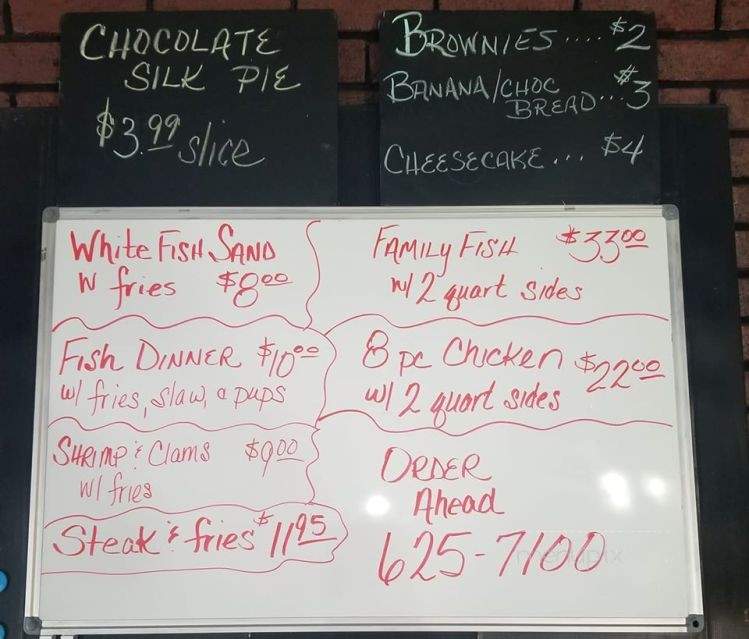 CHOCOLATE
SILK PIE
$3.99 slice
BROWNIES .... $2
BANANA/CHOC
BREAD... $3
CHEESECAKE ... $4
White FISH SAND
W fries $8.00
FAMILY FISH $33.00
w/ 2 quart sides
Fish DINNER $10.00
w/ fries, slaw, & pups
8 pc Chicken $22.00
w/ 2 quart sides
SHRIMP & Clams $9.00
w/ fries
Steak & fries $11.95
ORDER
Ahead
625-7100